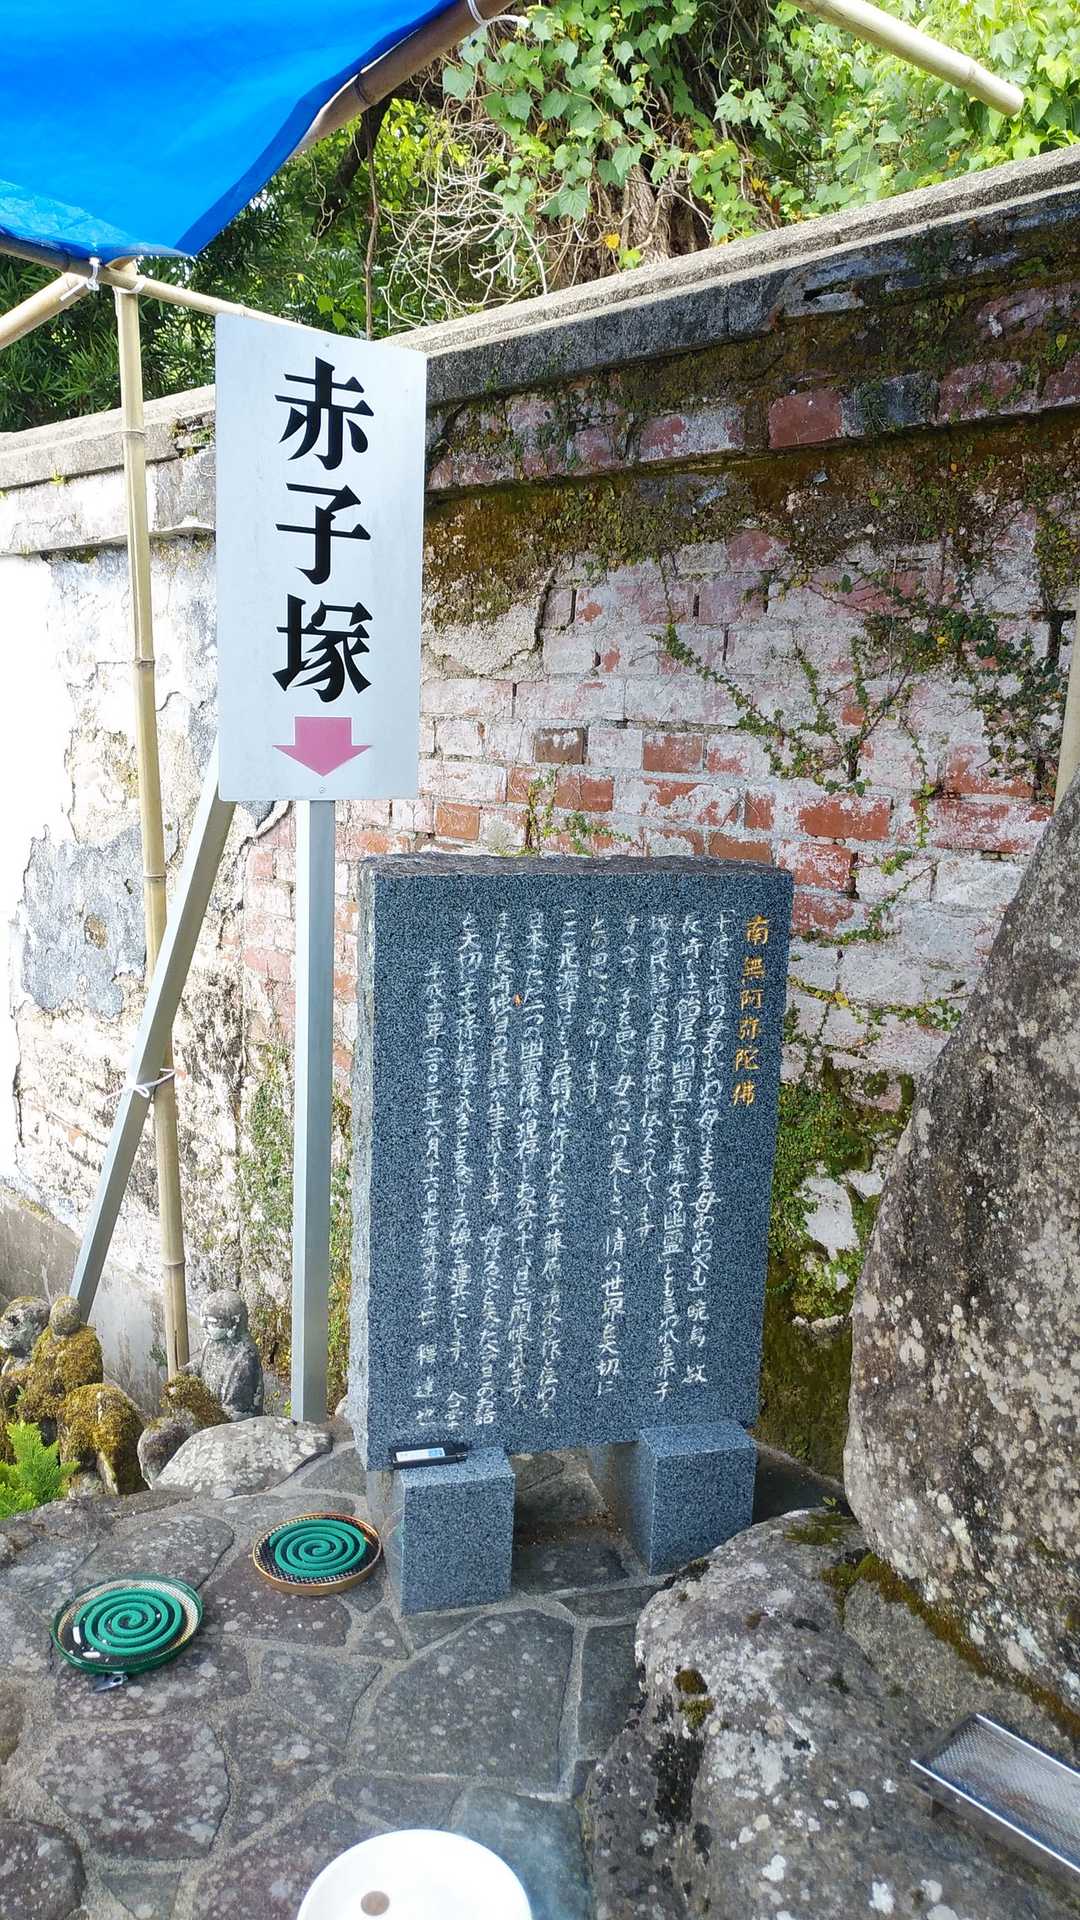 赤子塚
南無阿弥陀佛
「十億に十億の母あれどわが母にまさる母あらめやも」暁烏 敏
長崎には飴屋の幽霊ともも産女の幽霊とも言われる赤子
塚の民話は全国各地に伝えられています
すべて 子を思う 母の心の美しさ、情の世界を大切に
との思いであります。
ここ光源寺にも江戸時代に作られた名工藤原清水の作と伝わる
日本でただ一つの幽霊像が現存しお盆の十六日に開帳されます。
また長崎独自の民話が生まれています 母なることを失った今日この お話
を大切に子や孫に継承されることを念じこの碑を建立いたします。 合掌
平成十四年(二〇〇二年)六月十六日 光源寺第十七世 釋